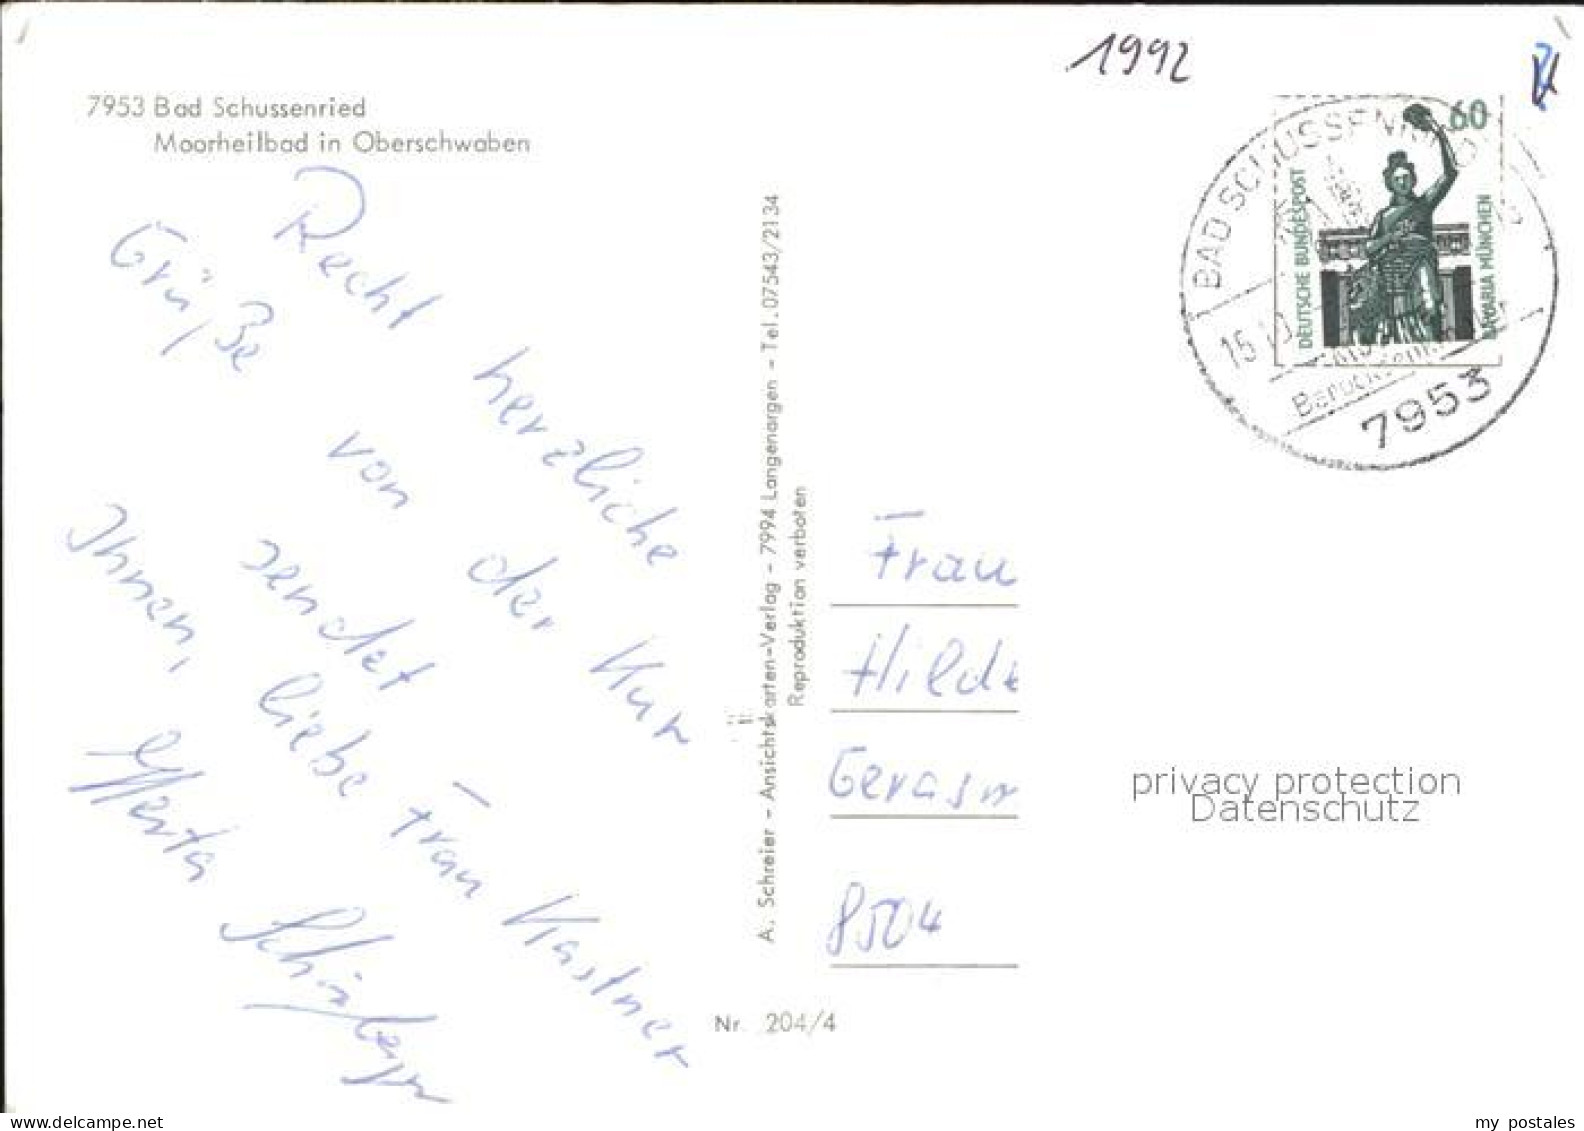 1992
7953 Bad Schussenried
Moorheilbad in Oberschwaben
60
DEUTSCHE BUNDESPOST
BAVARIA MÜNCHEN
BAD SCHUSSENRIED
7953
Recht herzliche
Grüße von der Kur
sendet
Ihnen, liebe Frau Kastner
Herta
A. Schreier - Ansichtskarten-Verlag - 7994 Langenargen - Tel. 07543/2134
Reproduktion verboten
Frau
Hilde
8504
privacy protection
Datenschutz
Nr. 204/4
my postales
www.delcampe.net